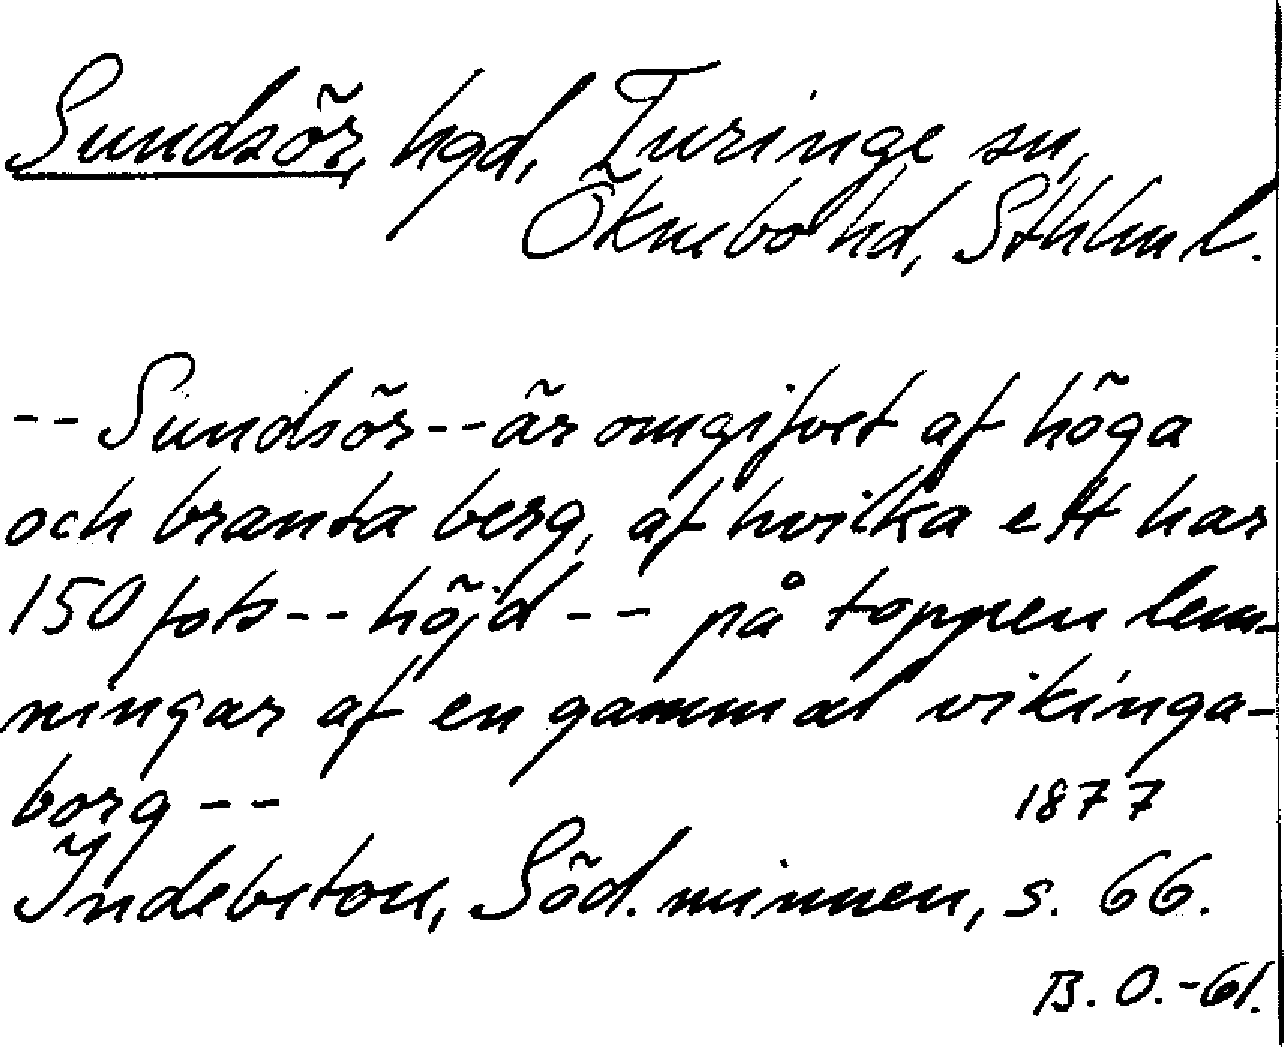 Sundsör, hgd, Turinge sn,
Öknebo hd, Sthlm l.
-- Sundsör -- är omgifvet af höga
och branta berg, af hvilka ett har
150 fots -- höjd -- på toppen lem-
ningar af en gammal vikinga-
borg -- 1877
Indebetou, Söd. minnen, s. 66.
B. O. -61.